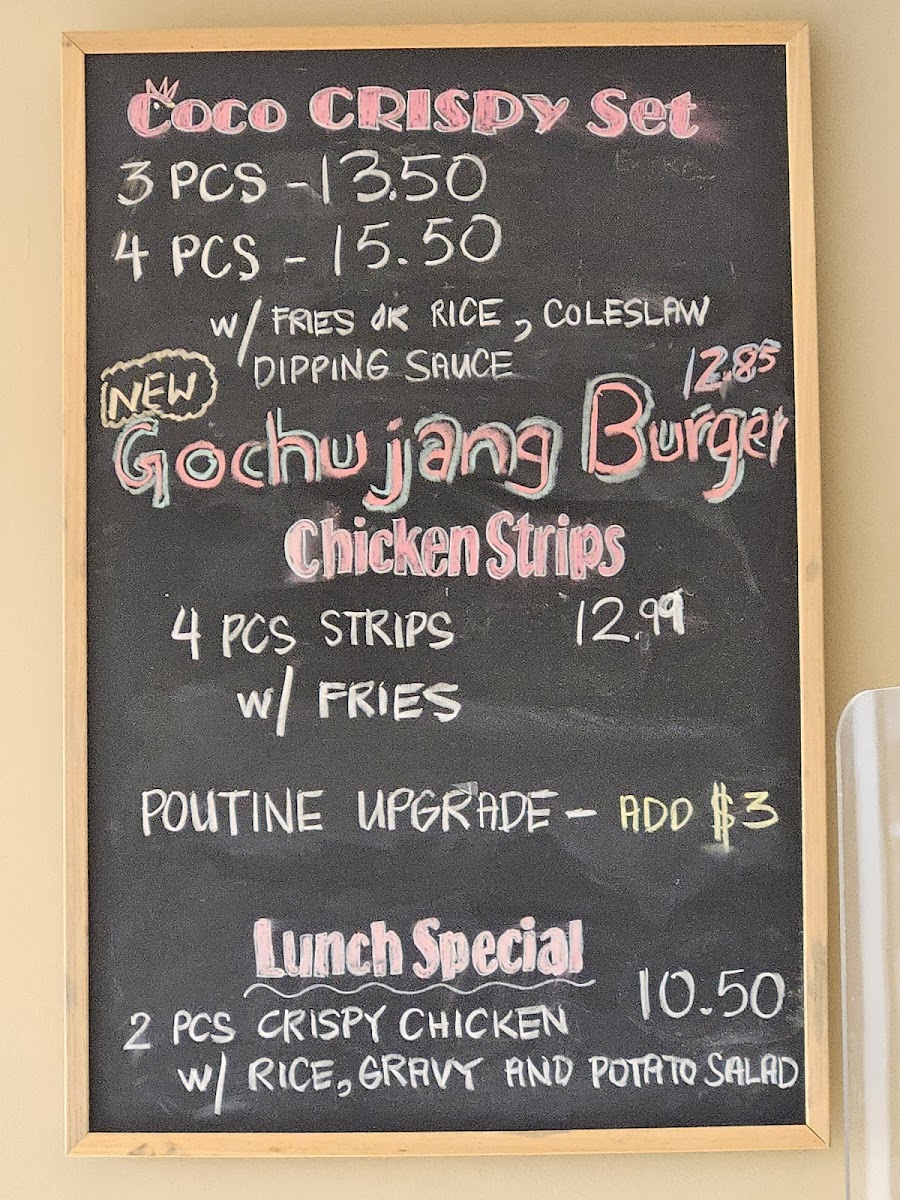 Coco CRISPY Set
3 PCS - 13.50
4 PCS - 15.50
W/ FRIES OR RICE, COLESLAW
DIPPING SAUCE
12.85
NEW
Gochujang Burger
Chicken Strips
4 PCS STRIPS 12.99
W/ FRIES
POUTINE UPGRADE - ADD $3
Lunch Special
10.50
2 PCS CRISPY CHICKEN
W/ RICE, GRAVY AND POTATO SALAD